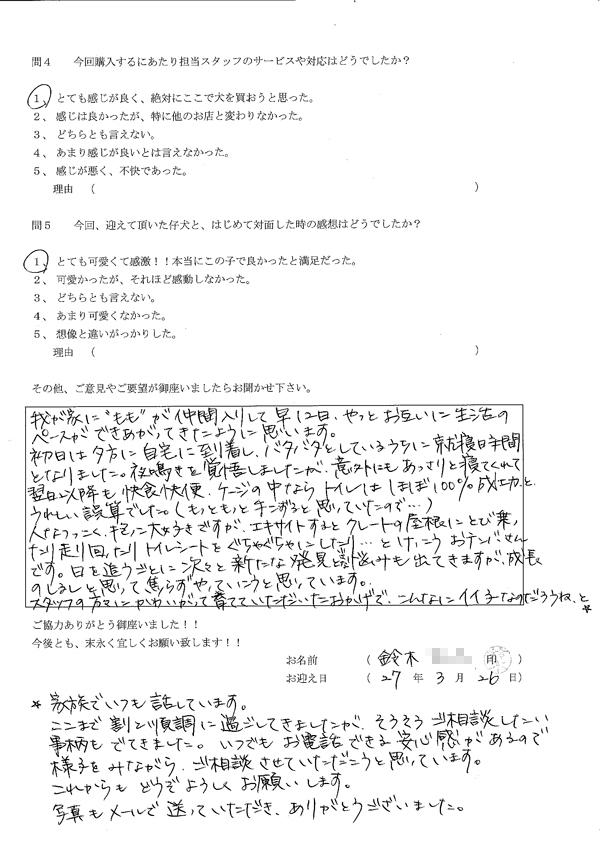 問４　今回購入するにあたり担当スタッフのサービスや対応はどうでしたか？
１、とても感じが良く、絶対にここで犬を買おうと思った。
２、感じは良かったが、特に他のお店と変わりなかった。
３、どちらとも言えない。
４、あまり感じが良いとは言えなかった。
５、感じが悪く、不快であった。
理由　（　　　）
問５　今回、迎えて頂いた仔犬と、はじめて対面した時の感想はどうでしたか？
１、とても可愛くて感激！！本当にこの子で良かったと満足だった。
２、可愛かったが、それほど感動しなかった。
３、どちらとも言えない。
４、あまり可愛くなかった。
５、想像と違いがっかりした。
理由　（　　　）
その他、ご意見やご要望が御座いましたらお聞かせ下さい。
我が家に"もも"が仲間入りして早12日、やっとお互いに生活の
ペースができあがってきたように思います。
初日は夕方に自宅に到着し、バタバタとしているうちに就寝時間
となりました。夜鳴きを覚悟しましたが、意外にもあっさりと寝てくれて
翌日以降も快食快便、ケージの中なら トイレは ほぼ100%成功と、
うれしい誤算でした。(もっともっと手こずると思っていたので…)
人なつっこく、抱っこ大好きですが、エキサイトするとクレートの屋根にとび乗っ
たり走り回ったりトイレシートをぐちゃぐちゃにしたり…と けっこうおテンバさん
です。日を追うごとに次々と新たな発見と悩みも出てきますが、成長
のしるしと思って焦らずやっていこうと思っています。
スタッフの方々にかわいがって育てていただいたおかげで、こんなにイイ子なのだろうね、と
*
ご協力ありがとう御座いました！！
今後とも、末永く宜しくお願い致します！！
お名前　（　鈴木　　印　）
お迎え日　（　27　年　3　月　26　日）
* 家族でいつも話しています。
ここまで割と順調に過ごしてきましたが、そろそろご相談したい
事柄もでてきました。いつでもお電話できる安心感があるので
様子をみながら、ご相談させていただこうと思っています。
これからも どうぞよろしく お願いします。
写真もメールで送っていただき、ありがとうございました。